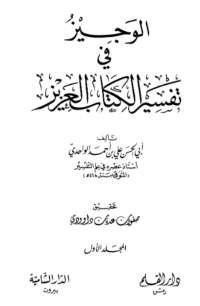 الوجيز
في
تفسير الكتاب العزيز
تأليف
أبي الحسن علي بن أحمد الواحدي
أستاذ عصره في علم التفسير
(المتوفى سنة ٤٦٨ هـ)
تحقيق
صفوان عدنان داوودي
المجلد الأول
دار القلم
دمشق
الدار الشامية
بيروت